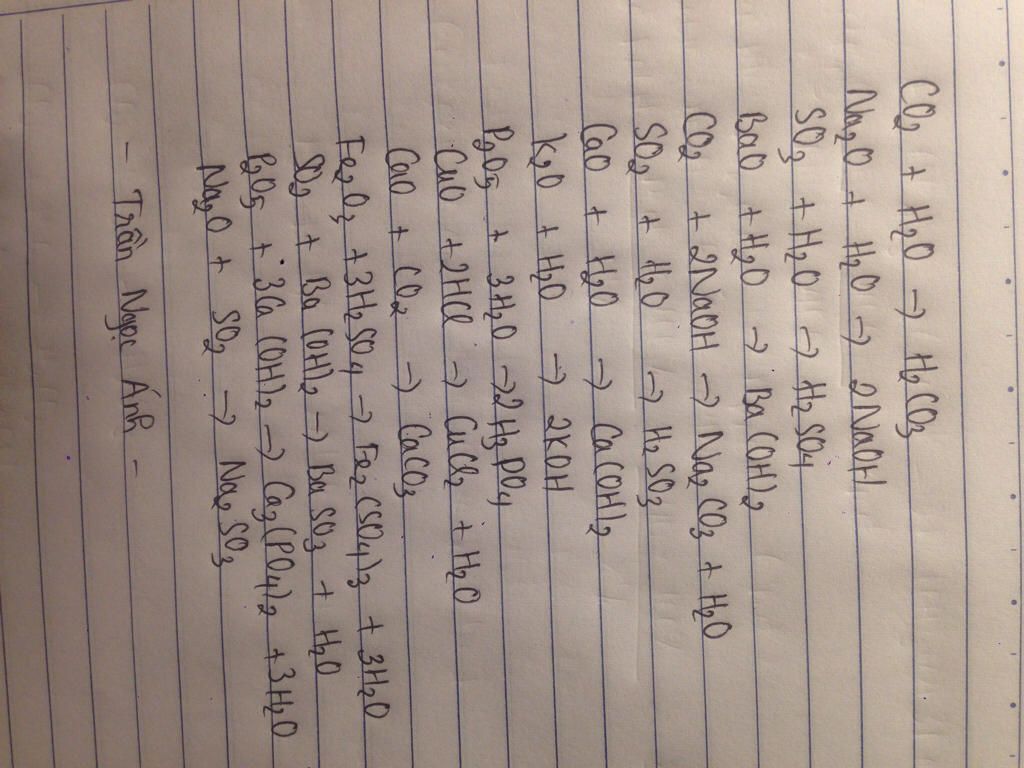 CO2 + H2O → H2CO3
Na2O + H2O → 2NaOH
SO3 + H2O → H2SO4
BaO + H2O → Ba(OH)2
CO2 + 2NaOH → Na2CO3 + H2O
SO2 + H2O → H2SO3
CaO + H2O → Ca(OH)2
K2O + H2O → 2KOH
P2O5 + 3H2O → 2H3PO4
CuO + 2HCl → CuCl2 + H2O
CaO + CO2 → CaCO3
Fe2O3 + 3H2SO4 → Fe2(SO4)3 + 3H2O
SO2 + Ba(OH)2 → BaSO3 + H2O
P2O5 + 3Ca(OH)2 → Ca3(PO4)2 + 3H2O
Na2O + SO2 → Na2SO3
- Trần Ngọc Ánh -